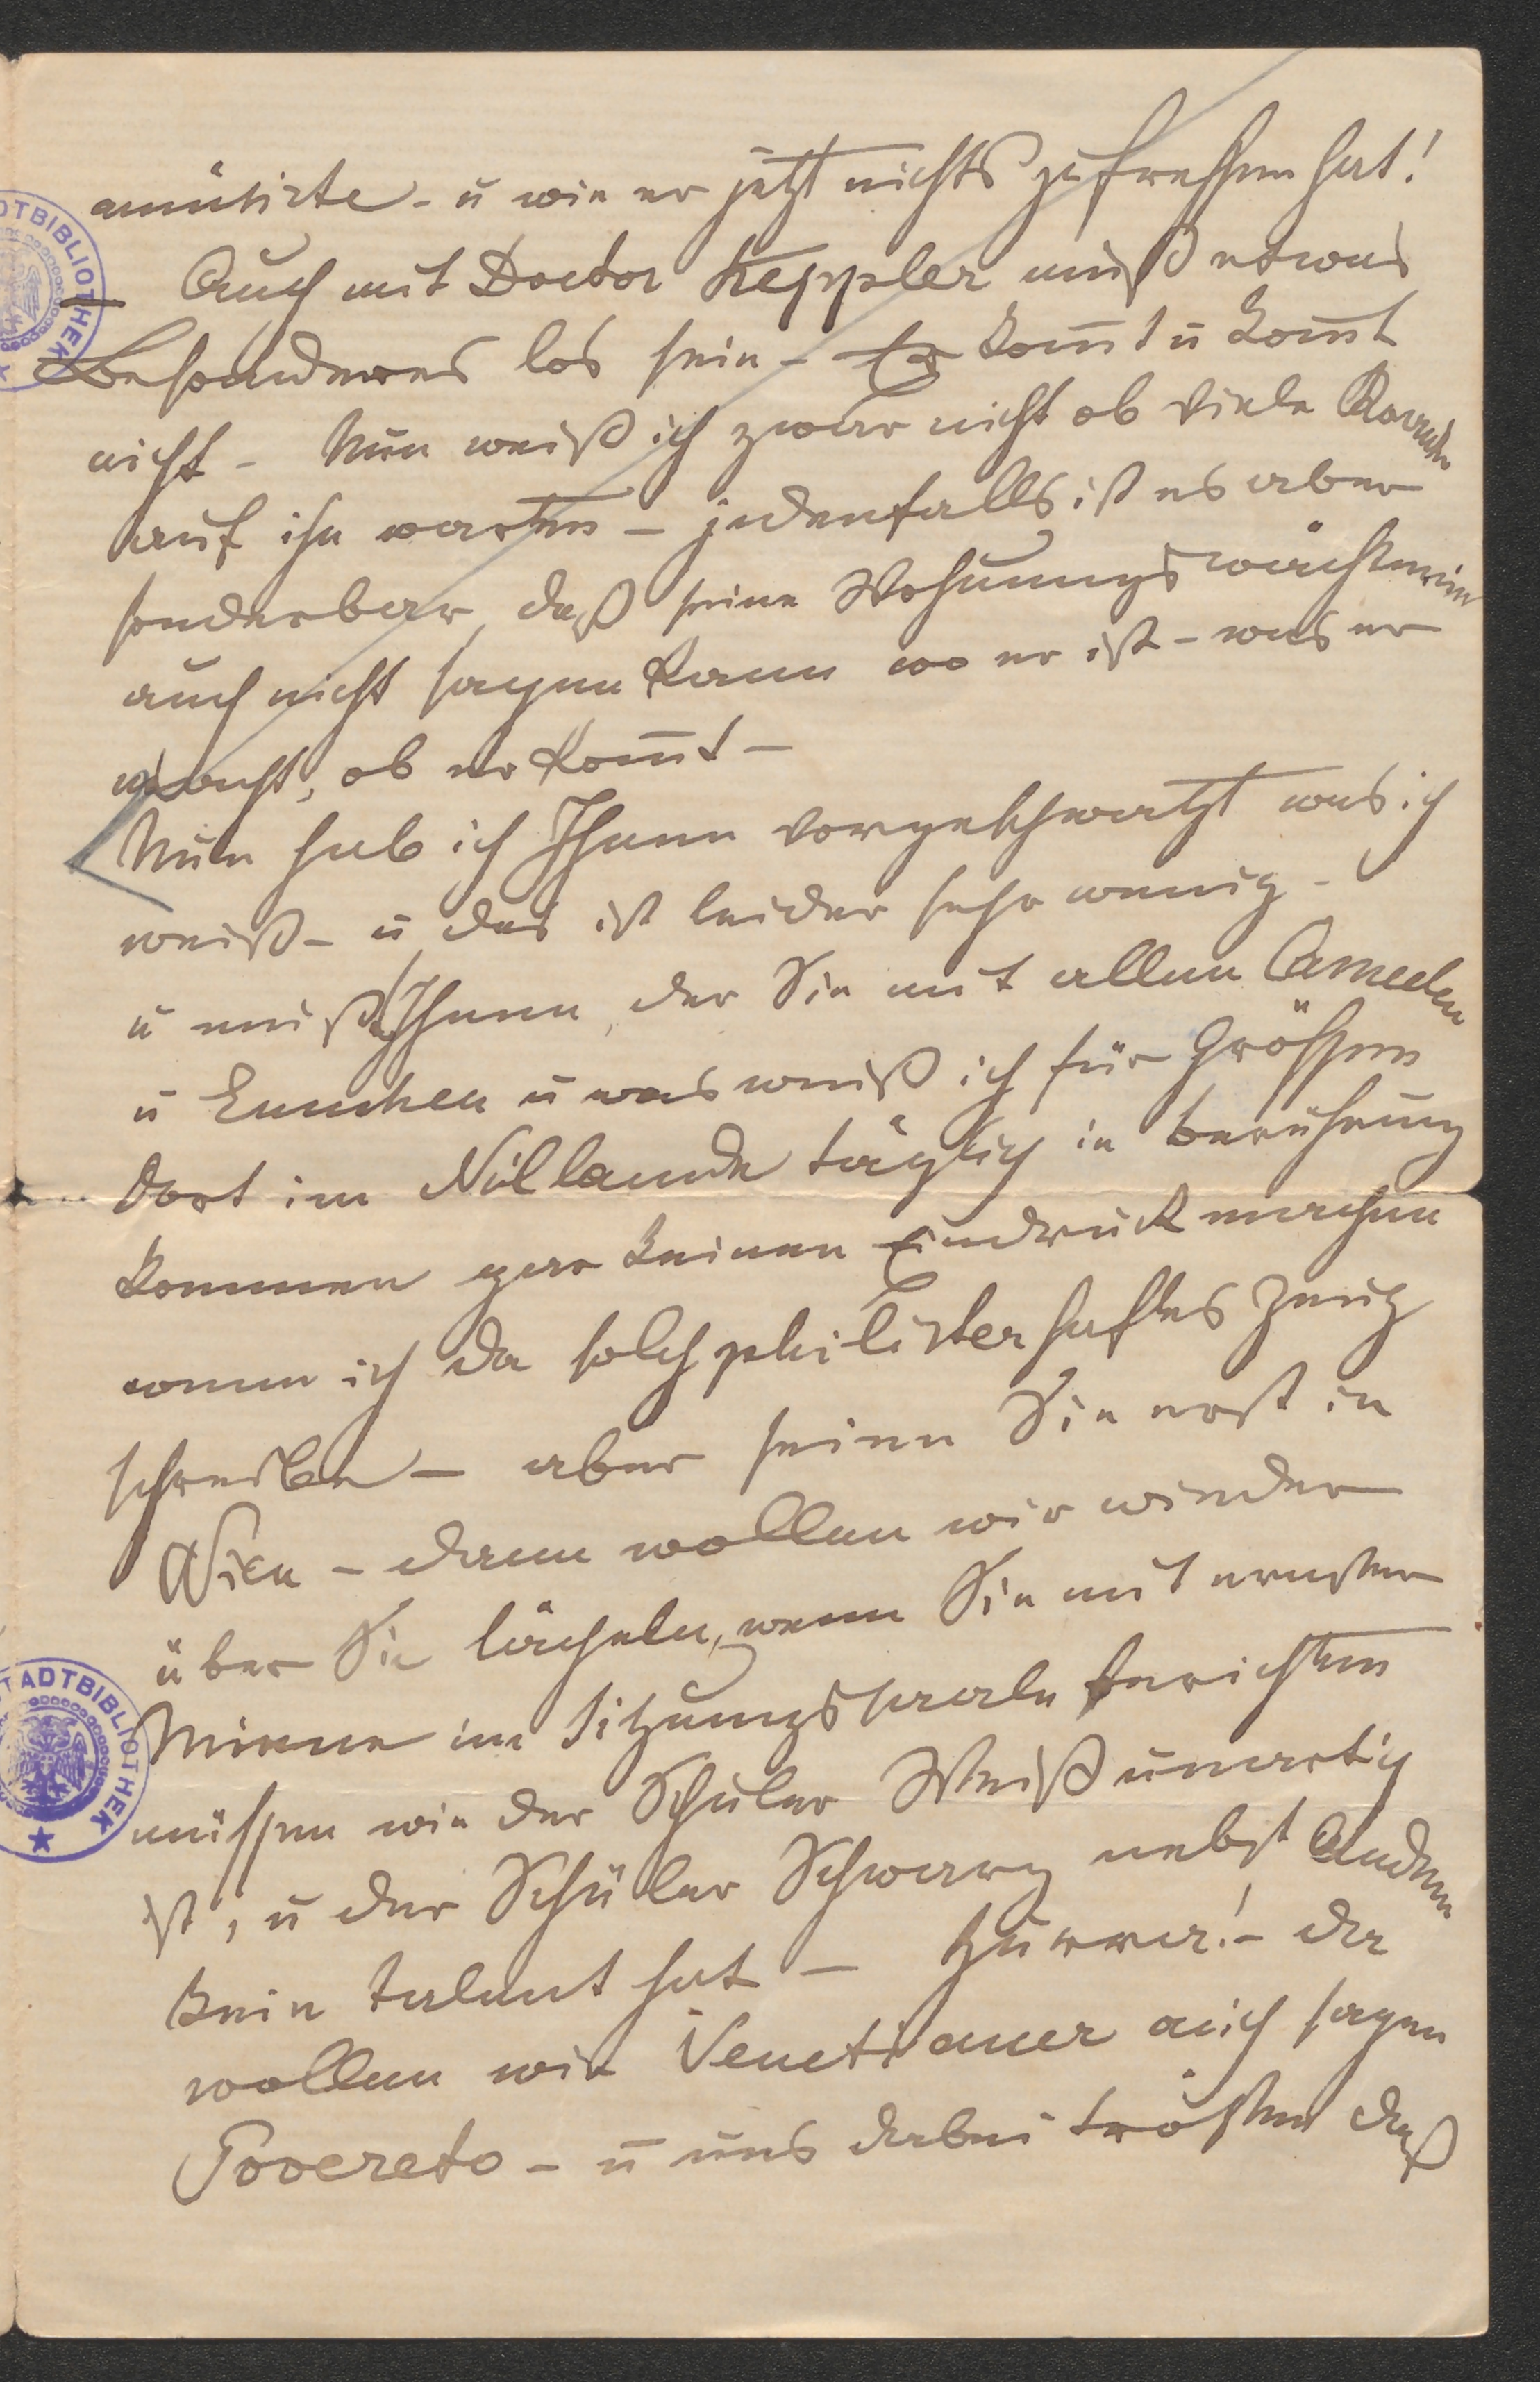 amüsirte - u wie er jetzt nichts zu fressen hat!
Auch mit Doctor Keppler muß etwas
Besonderes los sein - Er kom̅t u kom̅t
nicht - Nun weiß ich zwar nicht ob viele Kranke
auf ihn warten - jedenfalls ist es aber
sonderbar, daß seine Wohnungswächterin
auch nicht sagen kann wo er ist - was er
macht, ob er kom̅t -
Nun hab ich Ihnen vorgeschwatzt was ich
weiß - u das ist leider sehr wenig -
u muß Ihnen, der Sie mit allen Cameelen
u Eunuchen u was weiß ich für Größen
dort im Nillande täglich in Berührung
kommen gar keinen Eindruck machen
wenn ich da solch philisterhaftes Zeug
schreibe - aber seien Sie erst in
Wien - dann wollen wir wieder
über Sie lächeln, wenn Sie mit ernster
Miene im Sitzungssaale berichten
müssen wie der Schüler Weiß unartig
ist, u der Schüler Schwarz nebst Andern
kein Talent hat - Hurrra! - da
wollen wir Venetianer auch sagen
Povereto - u uns dabei trösten daß
STADTBIBLIOTHEK
STADTBIBLIOTHEK